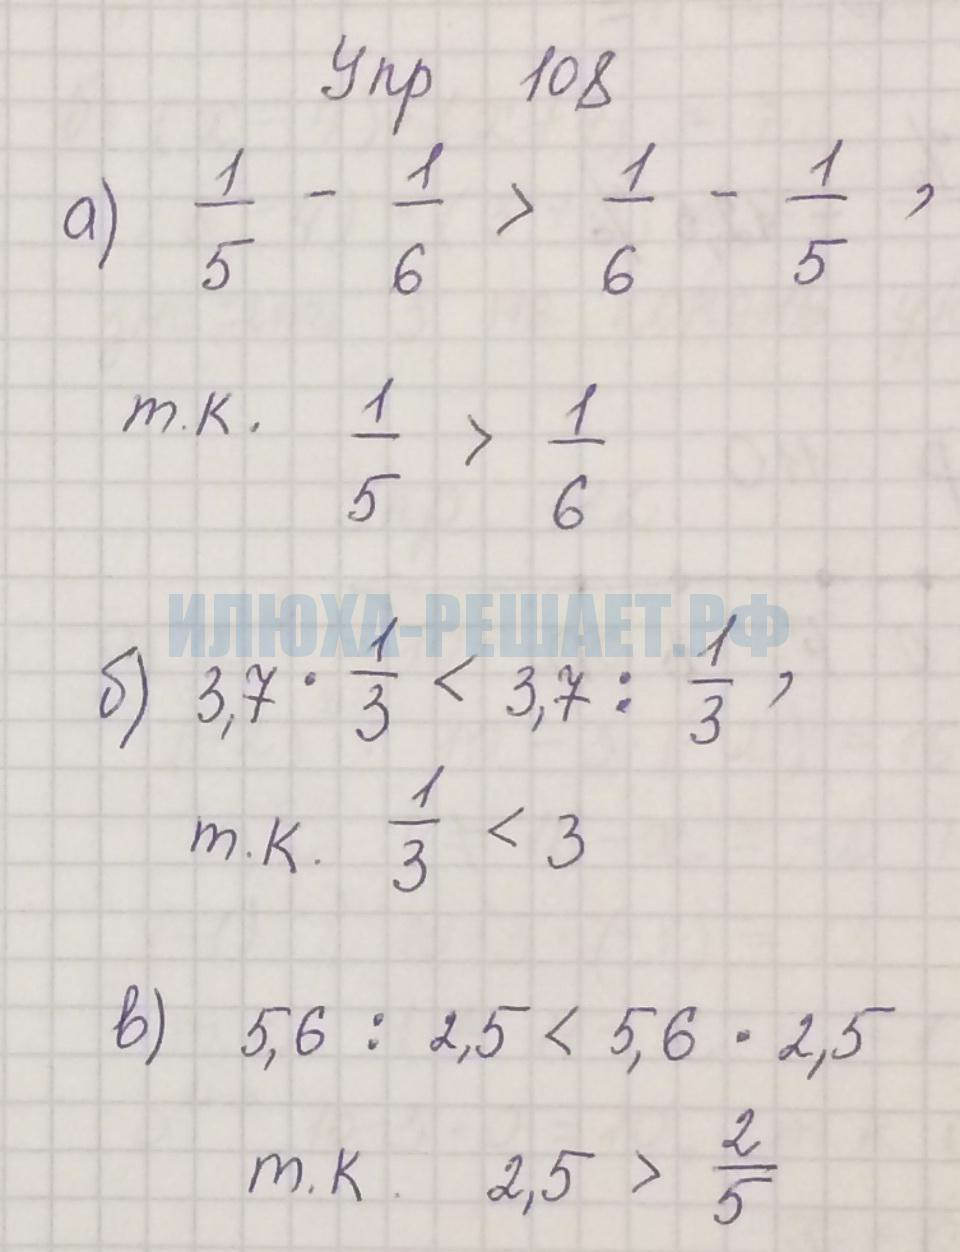 Упр 108
а) 1/5 - 1/6 > 1/6 - 1/5 ,
т.к. 1/5 > 1/6
ИЛЮХА-РЕШАЕТ.РФ
б) 3,7 · 1/3 < 3,7 : 1/3 ,
т.к. 1/3 < 3
в) 5,6 : 2,5 < 5,6 · 2,5
т.к. 2,5 > 2/5